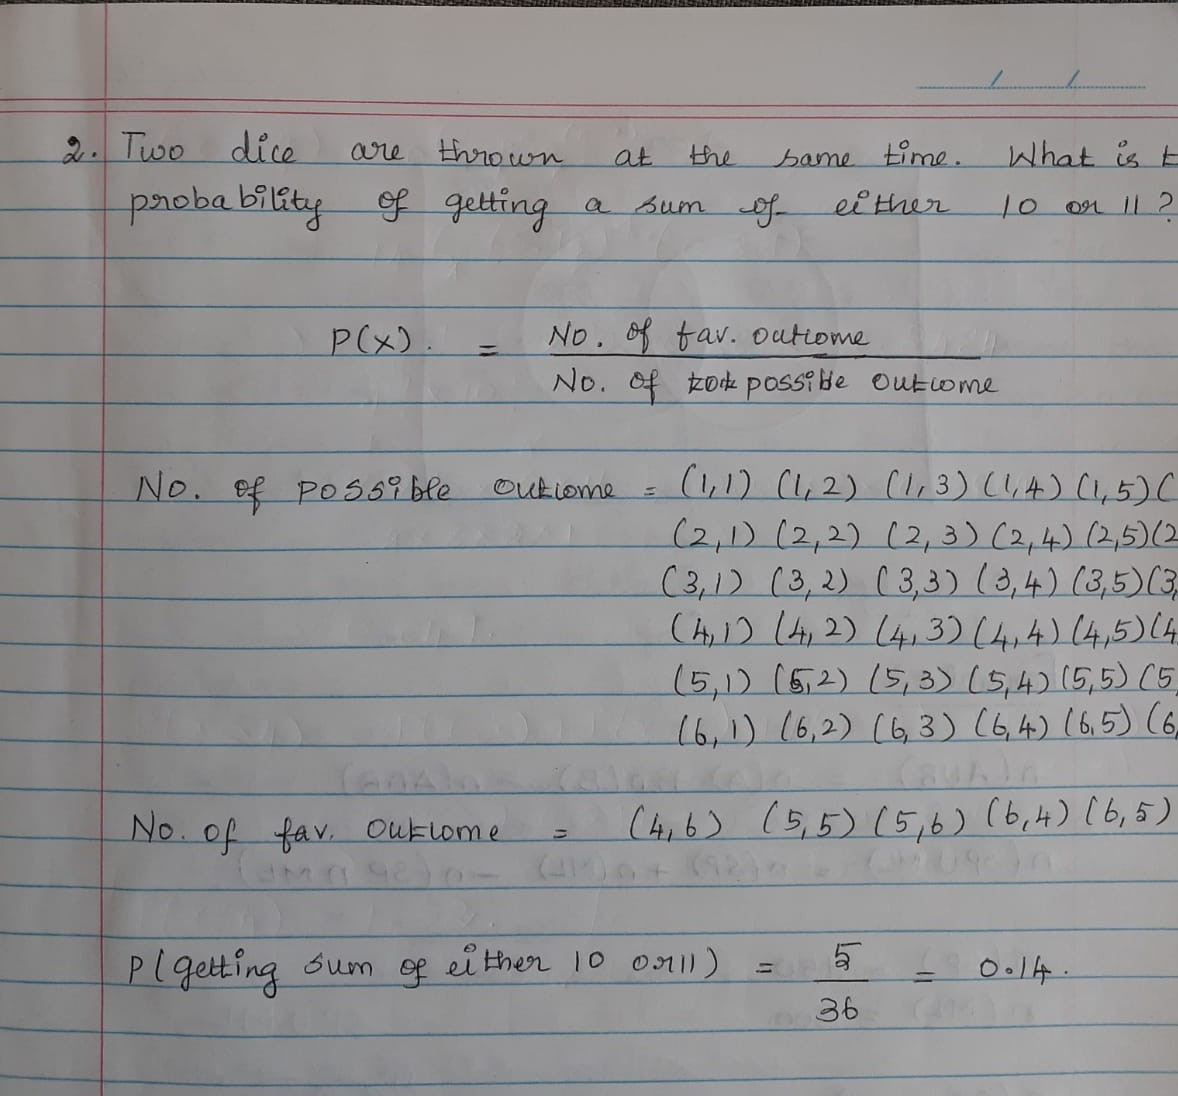 2. Two dice are thrown at the same time. What is t
probability of getting a sum of either 10 or 11?
P(x). = No. of fav. outcome
No. of possible outcome
No. of possible outcome = (1,1) (1,2) (1,3) (1,4) (1,5) (
(2,1) (2,2) (2,3) (2,4) (2,5) (2
(3,1) (3,2) (3,3) (3,4) (3,5) (3,
(4,1) (4,2) (4,3) (4,4) (4,5) (4
(5,1) (5,2) (5,3) (5,4) (5,5) (5
(6,1) (6,2) (6,3) (6,4) (6,5) (6,
No. of fav. outcome = (4,6) (5,5) (5,6) (6,4) (6,5)
P(getting sum of either 10 or 11) = 5/36 = 0.14.